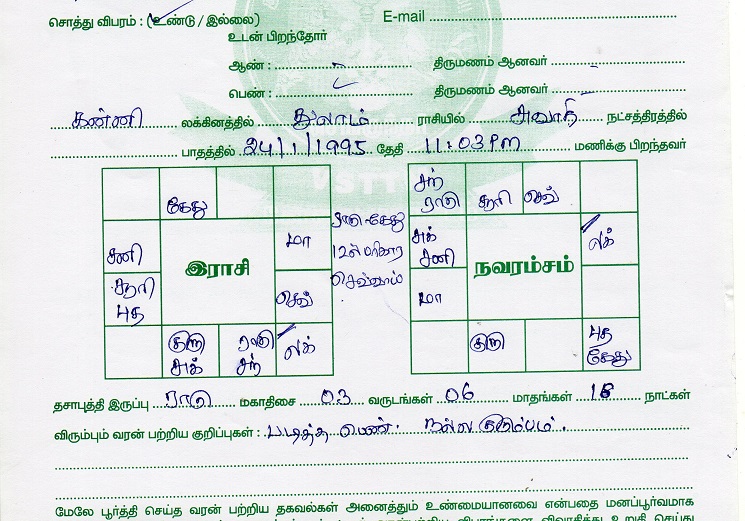 சொத்து விபரம் : (உண்டு / இல்லை) E-mail
உடன் பிறந்தோர்
ஆண் : திருமணம் ஆனவர் :
பெண் : திருமணம் ஆனவர் :
கன்னி லக்கினத்தில் துலாம் ராசியில் சுவாதி நட்சத்திரத்தில்
பாதத்தில் 24/1/1995 தேதி 11:03 PM மணிக்கு பிறந்தவர்
கேது
சனி
சூரி
புத
இராசி
மா
செவ்
குரு
சுக்
ராகு
சந்
லக்
ராகு - கேது
செவ்வாய்
சந்
ராகு
சூரி
செவ்
சுக்
சனி
மா
நவரம்சம்
லக்
குரு
புத
கேது
VSTT
தசாபுத்தி இருப்பு ராகு மகாதிசை 03 வருடங்கள் 06 மாதங்கள் 18 நாட்கள்
விரும்பும் வரன் பற்றிய குறிப்புகள் : படித்த பெண். நல்ல குடும்பம்.
மேலே பூர்த்தி செய்த வரன் பற்றிய தகவல்கள் அனைத்தும் உண்மையானவை என்பதை மனப்பூர்வமாக